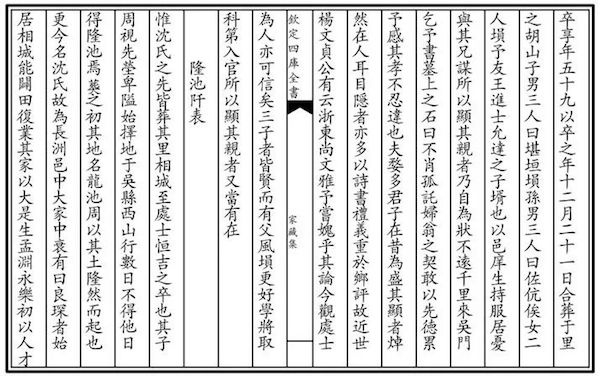 卒享年五十九以卒之年十二月二十一日合葬于里
之胡山子男三人曰堪垣塤孫男三人曰佐伉俟女二
人塤予友王進士允達之子壻也以邑庠生持服居憂
與其兄謀所以顯其親者乃自為狀不遠千里來吳門
乞予書墓上之石曰不肖孤託婦翁之契敢以先德累
予感其孝不忍違也夫婺多君子在昔為盛其顯者焯
然在人耳目隱者亦多以詩書禮義重於鄉評故近世
楊文貞公有云浙東尚文雅予嘗媿乎其論今觀處士
欽定四庫全書
家藏集
為人亦可信矣三子者皆賢而有父風塤更好學將取
科第入官所以顯其親者又當有在
隆池阡表
惟沈氏之先皆葬其里相城至處士恒吉之卒也其子
周視先塋卑隘始擇地于吳縣西山行數日不得他日
得隆池焉葬之初其地名龍池周以其土隆然而起也
更今名沈氏故為長洲邑中大家中衰有曰良琛者始
居相城能闢田復業其家以大是生孟淵永樂初以人才